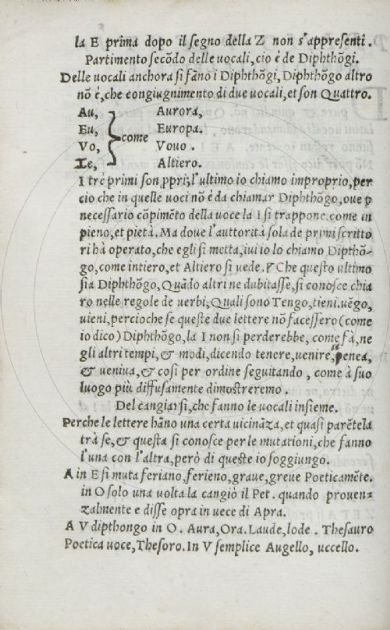 la E prima dopo il segno della Z non s'appresenti.
Partimento secõdo delle uocali, cio è de Diphthõgi.
Delle uocali anchora si fãno i Diphthõgi, Diphthõgo altro
nõ è, che congiugnimento di due uocali, et son Quattro.
Au, Aurora,
Eu, Europa.
Vo, come Vouo.
Ie, Altiero.
I tre primi son ꝓprij; l'ultimo io chiamo improprio, per
cio che in quelle uoci nõ è da chiamar Diphthõgo, oue ꝑ
necessario cõpimẽto della uoce la i si trappone. come in
pieno, et pietà. Ma doue l'auttorità sola de primi scritto
ri hà operato, che egli si metta, iui io lo chiamo Diphthõ-
go, come intiero, et Altiero si uede. Che questo ultimo
sia Diphthõgo, Quãdo altri ne dubitasse, si conosce chia
ro nelle regole de uerbi, Quali sono Tengo, tieni. uẽgo,
uieni, percioche se queste due lettere nõ facessero (come
io dico) Diphthõgo, la I non si perderebbe, come fà, ne
gli altri tempi, & modi, dicendo tenere, uenire, tenea,
& veniva, & cosi per ordine seguitando, come à suo
luogo più diffusamente dimostreremo.
Del cangiarsi, che fanno le uocali insieme.
Perche le lettere hãno una certa uicinãza, et quasi parẽtela
trà se, & questa si conosce per le mutationi, che fanno
l'una con l'altra, però di queste io soggiungo.
A in E si muta feriano, ferieno, graue, greue Poeticamẽte.
in O solo una volta la cangiò il Pet. quando prouen-
zalmente e disse opra in uece di Apra.
A V dipthongo in O. Aura, Ora. Laude, lode. Thesauro
Poetica uoce, Thesoro. In V semplice Augello, uccello.